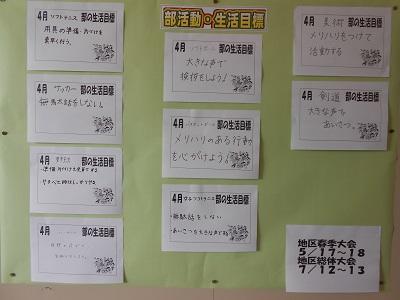 部活動・生活目標
4月 ソフトテニス 部の生活目標
用具の準備・片づけを
素早く行う。
4月 サッカー 部の生活目標
無駄話をしない。
4月 部の生活目標
4月 部の生活目標
4月 部の生活目標
大きな声で
挨拶をしよう!
4月 部の生活目標
メリハリのある行動
を心がけよう!
4月 女子ソフトテニス 部の生活目標
・無駄話をしない
・あいさつを大きな声でする
4月 美術 部の生活目標
メリハリをつけて
活動する
4月 剣道 部の生活目標
大きな声で
あいさつ。
地区春季大会
5/17~18
地区総体大会
7/12~13